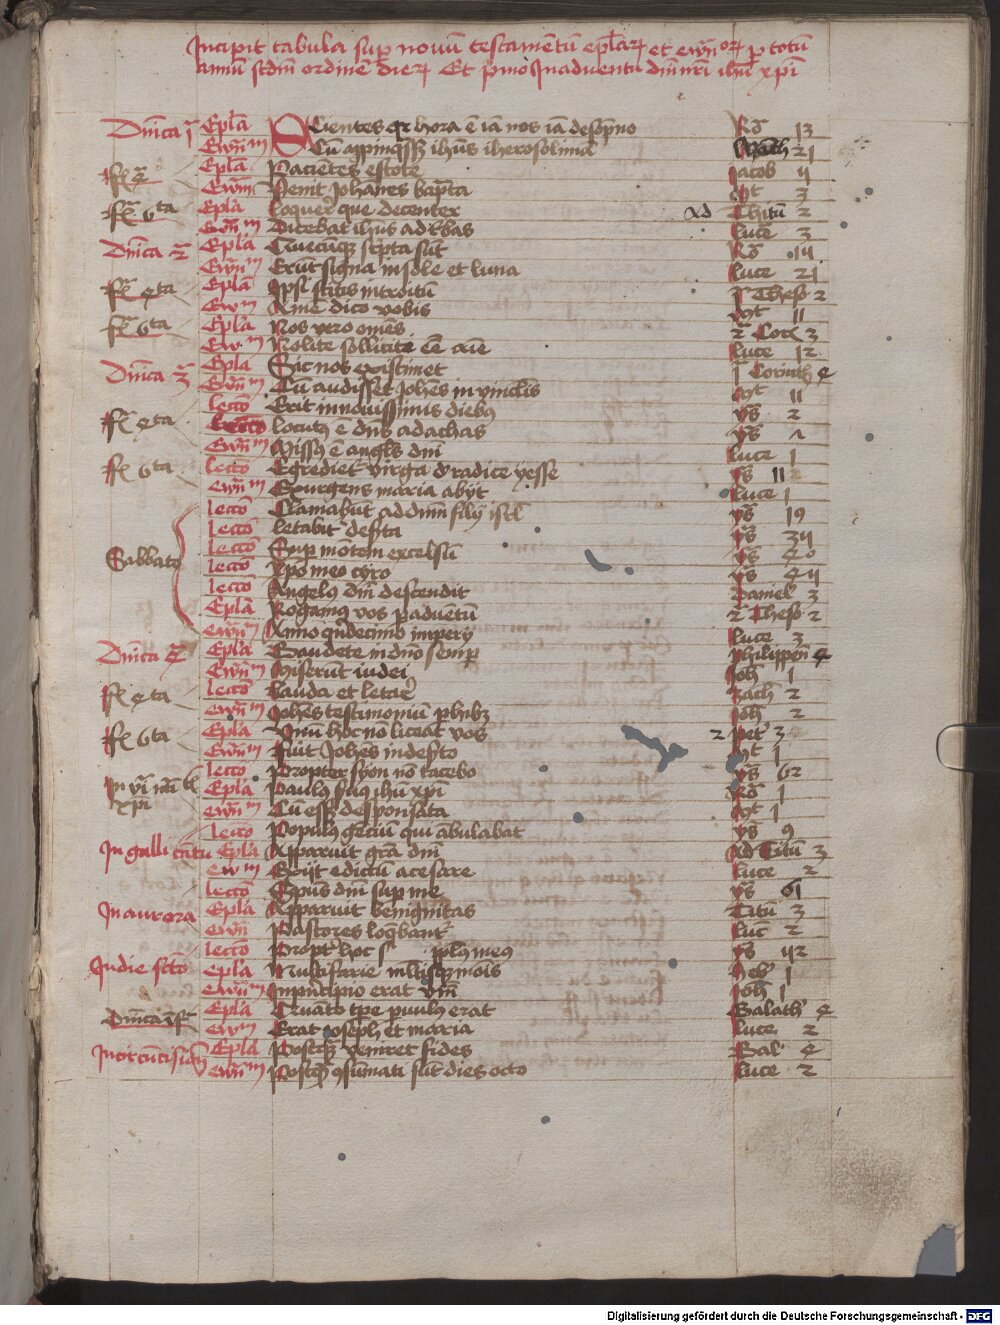 Incipit tabula sup novū testamētū ep̄larꝝ et ewāgꝝ p totū
annū scdm ordinē dierꝝ Et pmo In aduentu dn̄i nr̄i ihū xpī
Dn̄ica i Epl̄a Scientes qr hora ē iā nos iā de sōpno Ro 13
Ewn̄m Cū appinqsꝫ ihūs iherosolimā Math 21
fr 4 Epl̄a Pacientes estote Jacob 4
Ewn̄m Venit Johanes bapta Mt 3
fr 6ta Epl̄a Loquer que decenter ad Titū 2
Ewn̄m Dicebat ihūs ad tbas Luce 3
Dn̄ica 2 Epl̄a Quecūqꝫ scpta sūt Ro 14
Ewn̄m Erūt signa in sole et luna Luce 21
fr 4ta Epl̄a Ipsi scitis introitū 1 Thess 2
Ewm Amē dico vobis Mt 11
fr 6ta Epl̄a Nos vero om̄es 2 Cor 3
Ewm Nolite solliciti eē Luce 12
Dn̄ica 3 Epl̄a Sic nos existimet 1 Corinth 4
Ewn̄m Cū audisset Joh̄es in vinclis Mt 11
lecc̄o Erit in nouissimis diebꝰ ys 2
fr 4ta lecc̄o Locutꝰ ē dn̄s ad achas ys
Ewn̄m Missꝰ ē angl̄s dn̄i Luce 1
fr 6ta lecc̄o Egrediet virga d radice yesse ys 11
Ewn̄m Exurgens maria abijt Luce 1
lecc̄o Clamabūt ad dn̄m filij isrl ys 19
lecc̄o letabit desta ys 34
Sabbato lecc̄o Sup mōtem excelsū ys 40
lecc̄o Xpō meo cyro ys 44
lecc̄o Angelꝰ dn̄i descendit Daniel 3
Epl̄a Rogamꝰ vos p aduētū 2 Thess 2
ewn̄m Anno qndecimo imperij Luce 3
Dn̄ica 4 Epl̄a Gaudete in dn̄o semp Philippen 4
Ewn̄m Miserūt iudei Joh 1
fr 4ta lecc̄o Gauda et letare Zach 2
ewn̄m Joh̄es testimoniū phibꝫ Joh 2
fr 6ta Epl̄a Vnū hoc nō liceat vos 2 Pet 3
Ewn̄m Fuit Joh̄es in desto Mt 1
In vi nat lecc̄o Propter syon nō tacebo ys 62
xpī Epl̄a Paulꝰ seruꝰ ihū xpī Ro 1
ewn̄m Cū essꝫ desponsata Mt 1
lecc̄o Populꝰ gēciū qui ābulabat ys 9
In galli cātu Epl̄a Apparuit grā dn̄i Ad Titū 3
ewm Exijt edictū a cesare Luce 2
lecc̄o Spūs dn̄i sup me ys 61
In aurora Epl̄a Apparuit benignitas Titū 3
ewn̄m Pastores loqbant Luc 2
lecc̄o Propt hoc s pplꝰ meꝰ ys 42
In die scto epl̄a Multifarie mltisqꝫ mōis Heb 1
ewn̄m In pn̄cipio erat vbū Joh 1
Dn̄ica infra Epl̄a Quāto tpe puulꝰ erat Galath 4
ewm Erat ioseph et maria Luce 2
In circūcisiōe Epl̄a Postqꝫ veniret fides Gal 4
ewn̄m Postqꝫ ꝯsumati sūt dies octo Luce 2
Digitalisierung gefördert durch die Deutsche Forschungsgemeinschaft - DFG